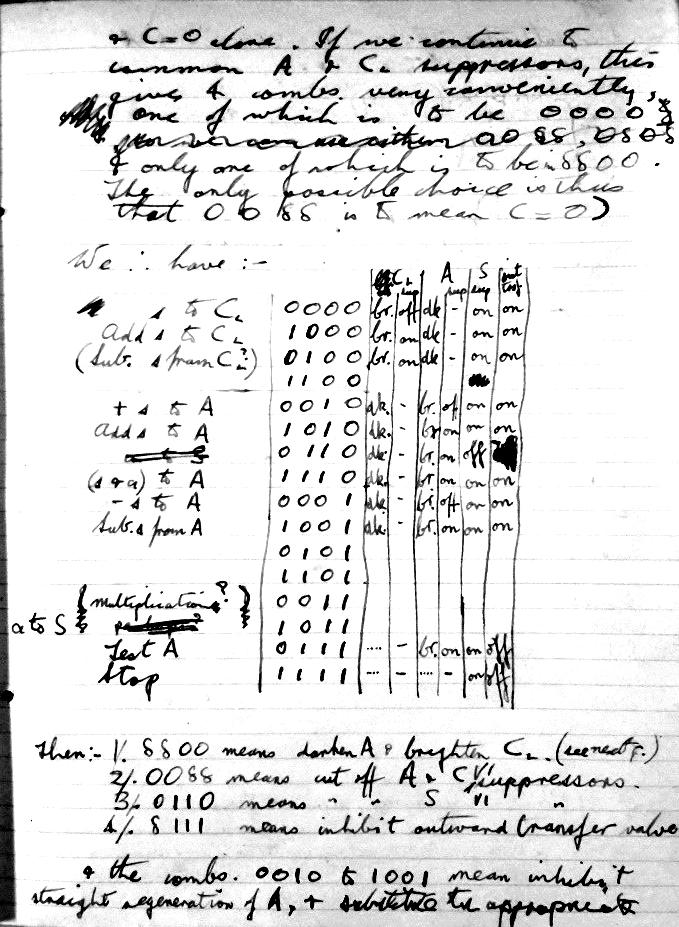 & C=0 alone. If we continue to
common A & C_L suppressors, this
gives 4 combs. very conveniently,
one of which is to be 0000
& only one of which is to be δδ00.
The only possible choice is thus
that 00δδ is to mean C=0)
We ∴ have :-
C_L sup A sup S sup
s to C_L 0000 br. off dk - on on
Add s to C_L 1000 br. on dk - on on
(Sub. s from C_L?) 0100 br. on dk - on on
1100
+ s to A 0010 dk. - br. off on on
Add s to A 1010 dk. - br on on on
0110 dk. - br. on off
(s & a) to A 1110 dk. - br. on on on
- s to A 0001 dk - br. off on on
Sub. s from A 1001 dk. - br. on on on
0101
1101
{ multiplication? } 0011
a to S 1011
Test A 0111 .... - br. on on off
Stop 1111 .... - .... - on off
Then:- 1/. δδ00 means darken A & brighten C_L. (see next p.)
2/. 00δδ means cut off A & C_L suppressors.
3/. 0110 means " " S " "
4/. δ111 means inhibit outward transfer valve
& the combs. 0010 to 1001 mean inhibit
straight regeneration of A, & substitute the appropriate